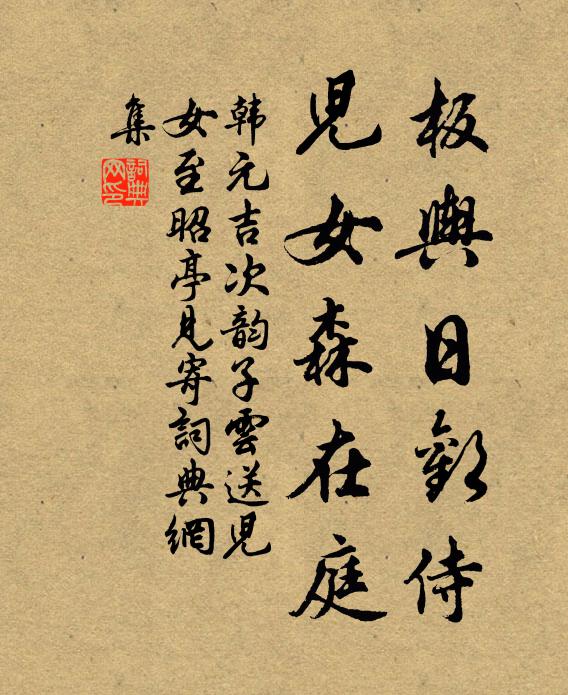 板輿日歡侍
兒女森在庭
韩元吉次韵子雲送兒
女至昭亭見寄詞典網
集
詞典
网印